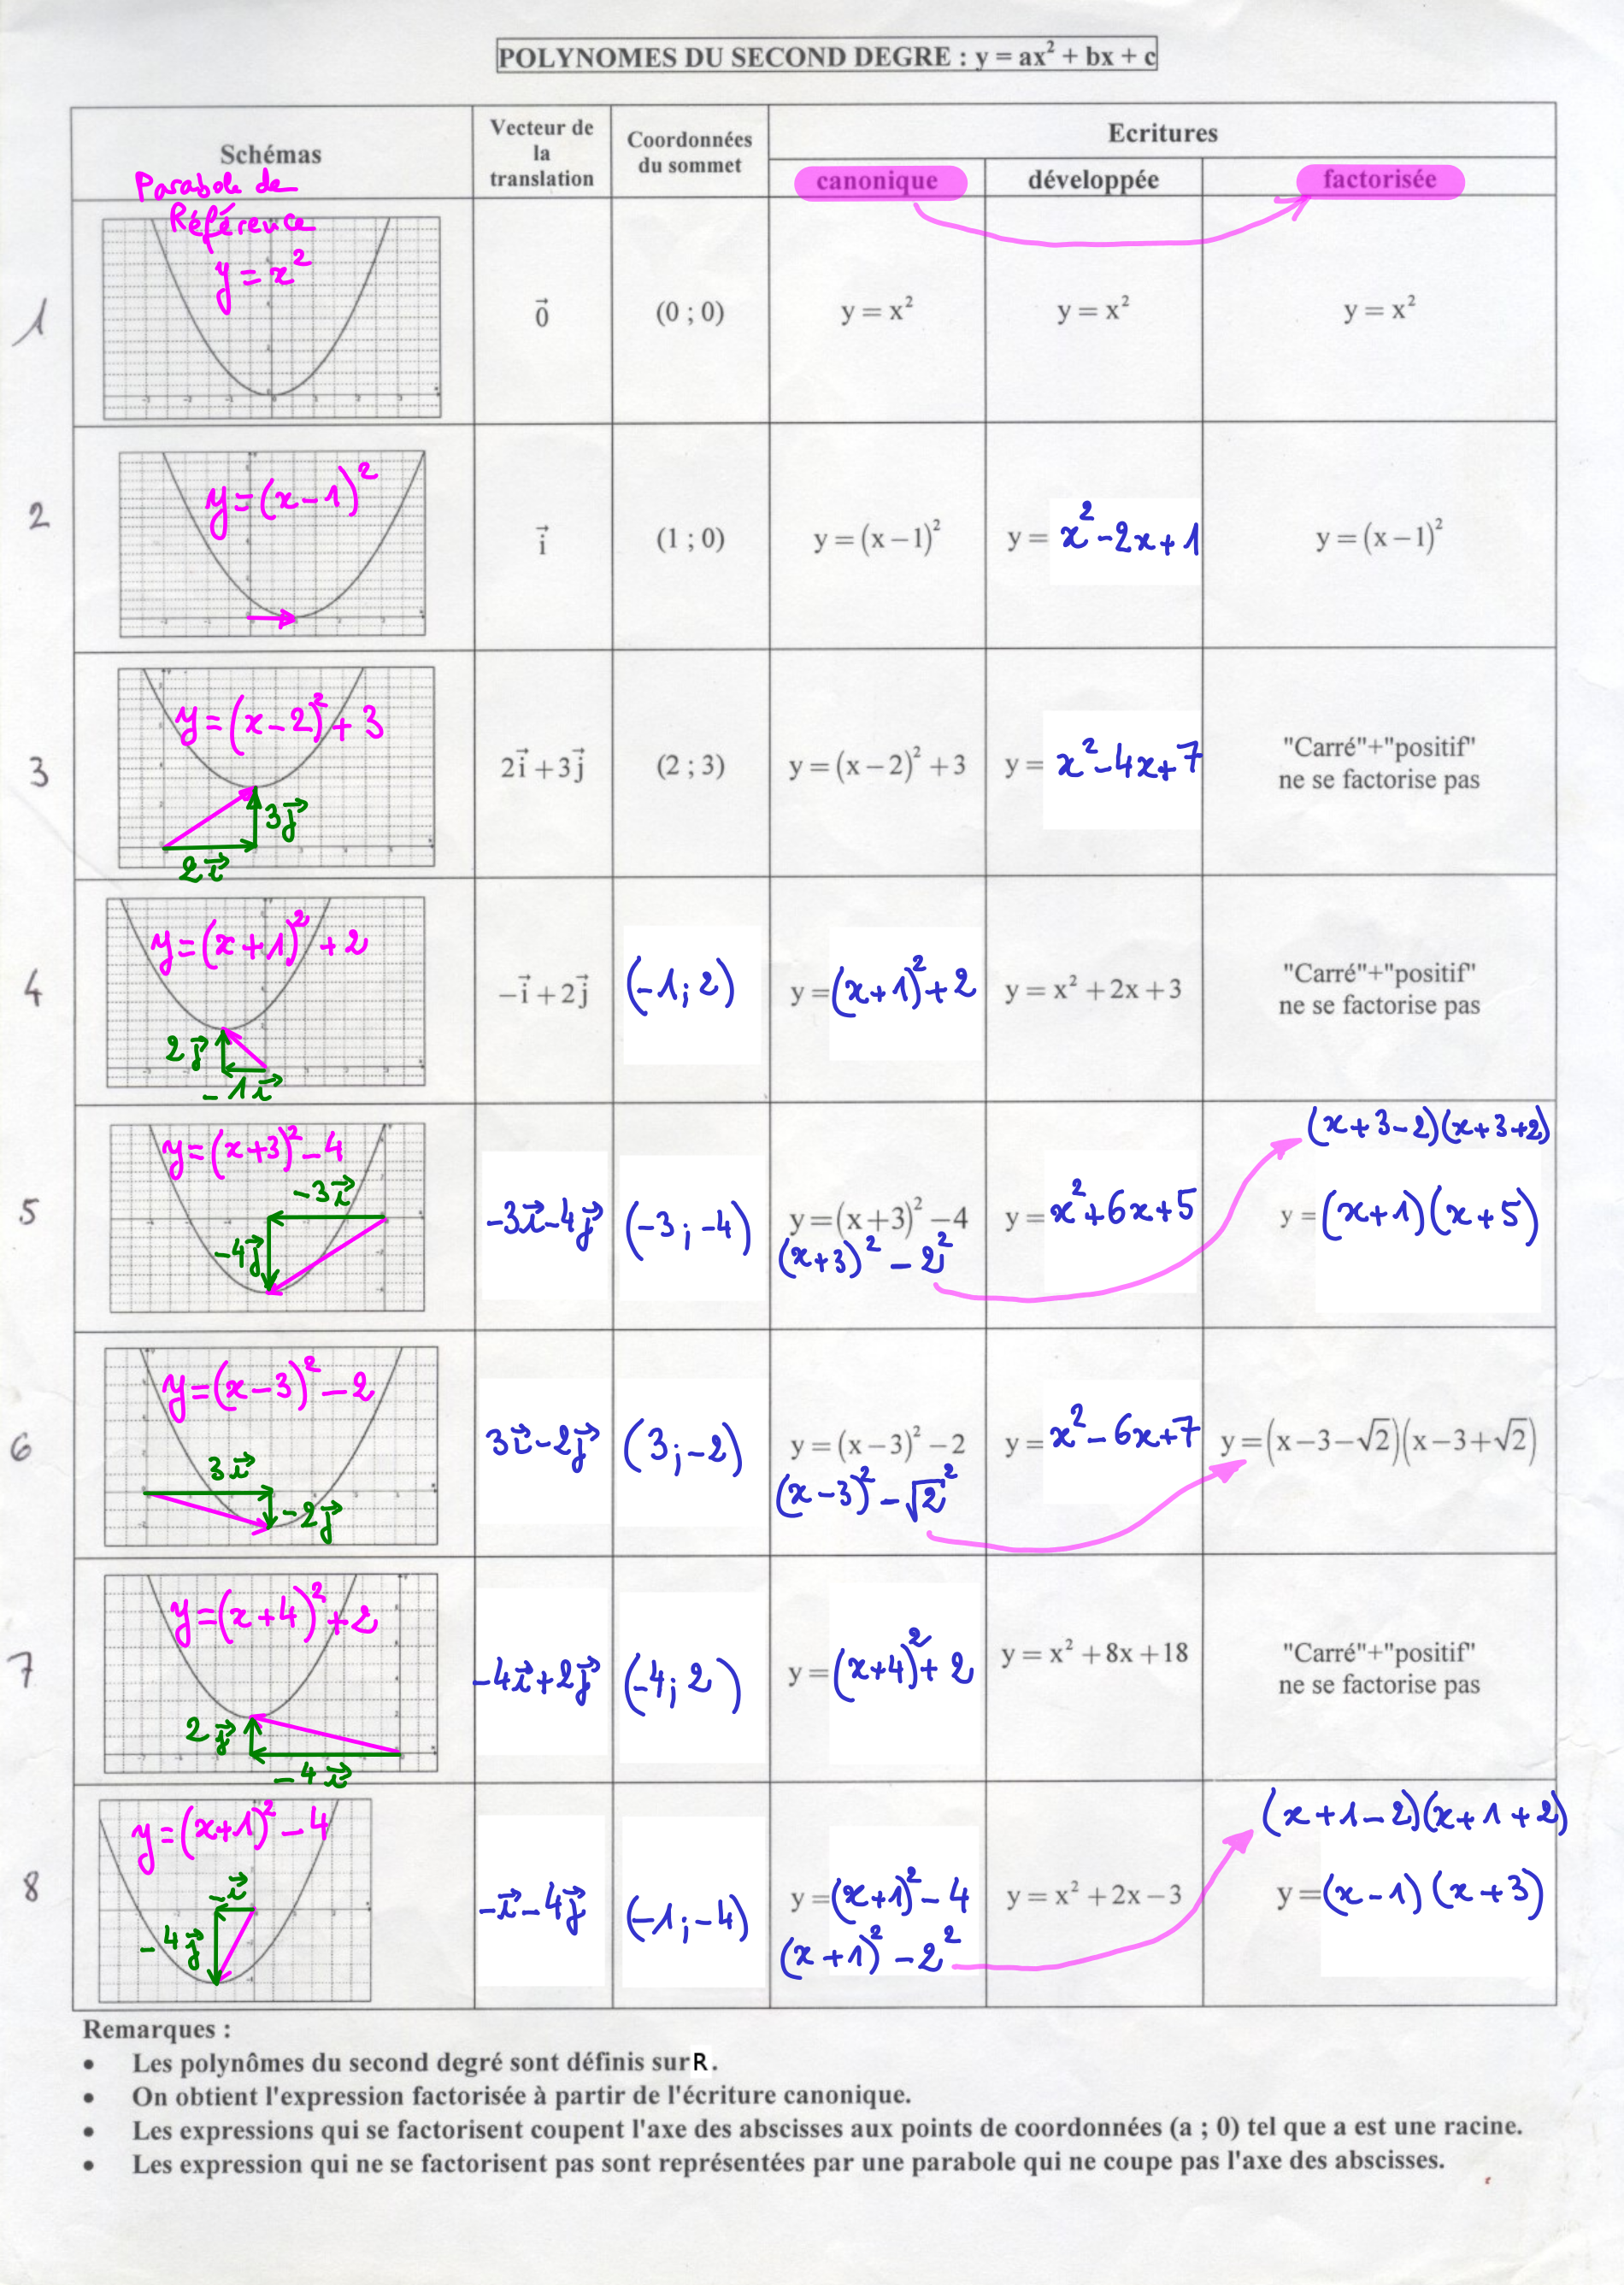 POLYNOMES DU SECOND DEGRE : y = ax² + bx + c
Schémas
Vecteur de
la
translation
Coordonnées
du sommet
Ecritures
canonique
développée
factorisée
Parabole de
Référence
y = x²
1
0⃗
(0 ; 0)
y = x²
y = x²
y = x²
2
y = (x - 1)²
i⃗
(1 ; 0)
y = (x - 1)²
y = x² - 2x + 1
y = (x - 1)²
3
y = (x - 2)² + 3
3j⃗
2i⃗
2i⃗ + 3j⃗
(2 ; 3)
y = (x - 2)² + 3
y = x² - 4x + 7
"Carré"+"positif"
ne se factorise pas
4
y = (x + 1)² + 2
2j⃗
- 1i⃗
-i⃗ + 2j⃗
(-1 ; 2)
y = (x + 1)² + 2
y = x² + 2x + 3
"Carré"+"positif"
ne se factorise pas
5
y = (x + 3)² - 4
-3i⃗
-4j⃗
-3i⃗ - 4j⃗
(-3 ; -4)
y = (x + 3)² - 4
(x + 3)² - 2²
y = x² + 6x + 5
(x + 3 - 2)(x + 3 + 2)
y = (x + 1)(x + 5)
6
y = (x - 3)² - 2
3i⃗
-2j⃗
3i⃗ - 2j⃗
(3 ; -2)
y = (x - 3)² - 2
(x - 3)² - √2²
y = x² - 6x + 7
y = (x - 3 - √2)(x - 3 + √2)
7
y = (x + 4)² + 2
2j⃗
-4i⃗
-4i⃗ + 2j⃗
(-4 ; 2)
y = (x + 4)² + 2
y = x² + 8x + 18
"Carré"+"positif"
ne se factorise pas
8
y = (x + 1)² - 4
-i⃗
-4j⃗
-i⃗ - 4j⃗
(-1 ; -4)
y = (x + 1)² - 4
(x + 1)² - 2²
y = x² + 2x - 3
(x + 1 - 2)(x + 1 + 2)
y = (x - 1)(x + 3)
Remarques :
• Les polynômes du second degré sont définis sur R.
• On obtient l'expression factorisée à partir de l'écriture canonique.
• Les expressions qui se factorisent coupent l'axe des abscisses aux points de coordonnées (a ; 0) tel que a est une racine.
• Les expression qui ne se factorisent pas sont représentées par une parabole qui ne coupe pas l'axe des abscisses.